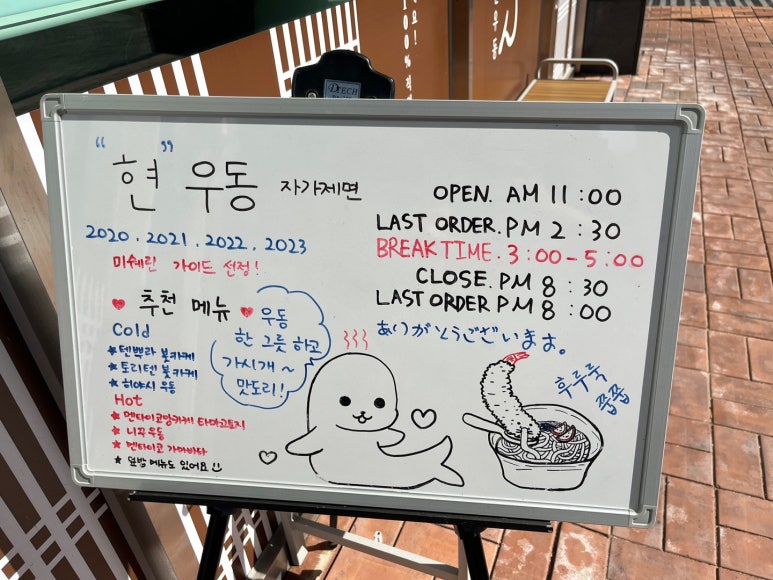 "현" 우동 자가제면
2020 . 2021 . 2022 . 2023
미쉐린 가이드 선정!
♥ 추천 메뉴 ♥
Cold
★ 텐뿌라 붓카케
★ 토리텐 붓카케
★ 히야시 우동
Hot
★ 멘타이코앙카케 타마고토지
★ 니꾸우동
★ 멘타이코 가마바타
★ 덮밥 메뉴도 있어요
우동
한 그릇 하고
가시개~
맛도리!
OPEN. AM 11 : 00
LAST ORDER. PM 2 : 30
BREAK TIME. 3 : 00 - 5 : 00
CLOSE. PM 8 : 30
LAST ORDER PM 8 : 00
ありがとうございます。
후루룩
쫩쫩
DTECH
100%
우동